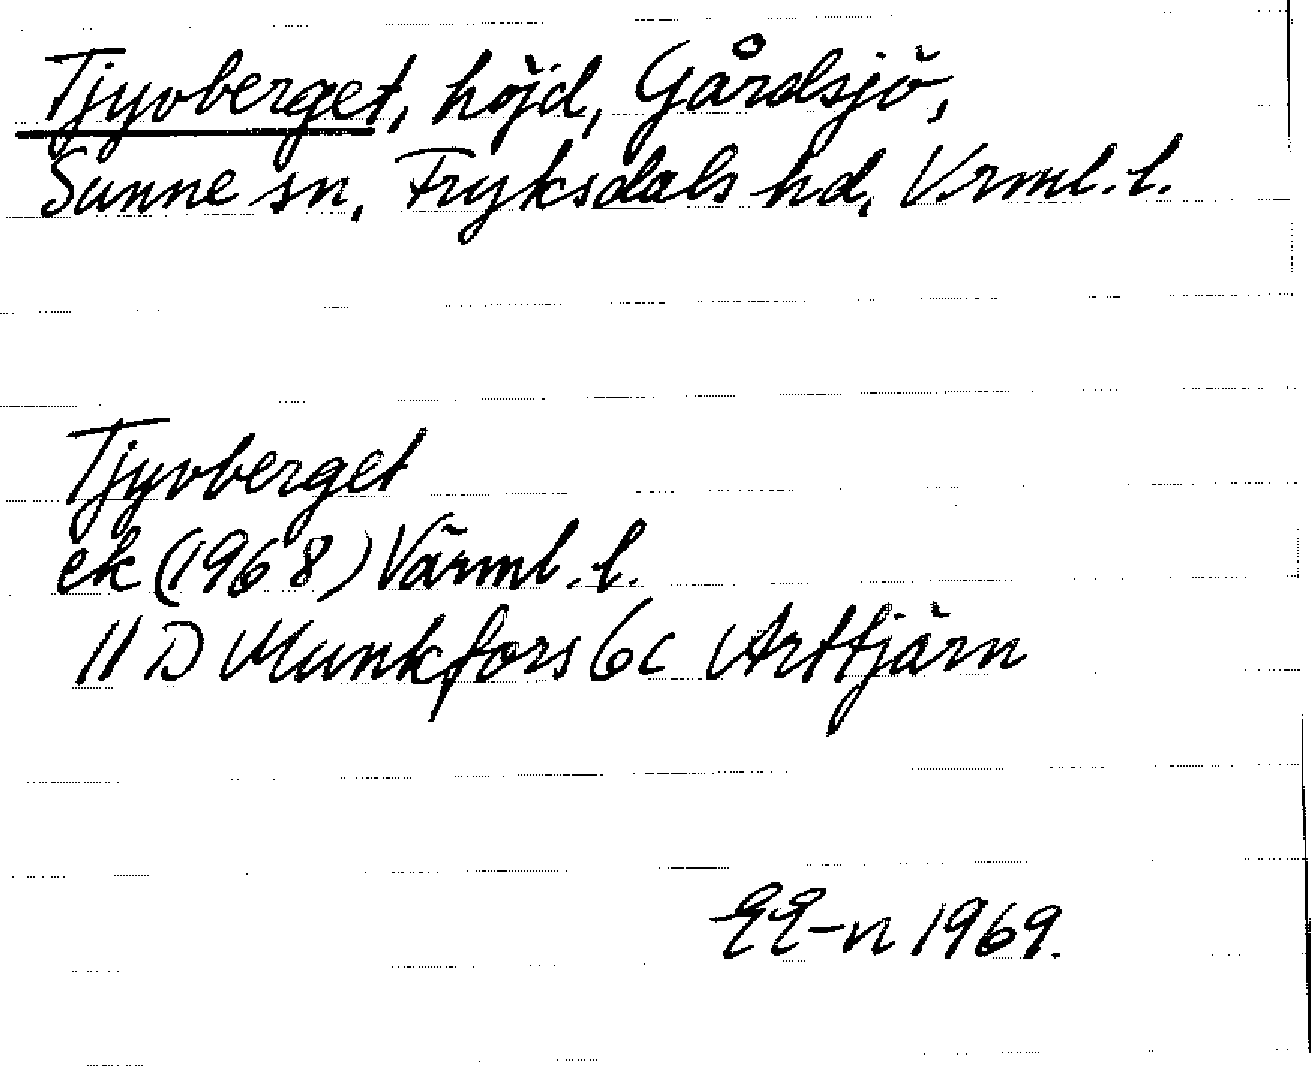 Tjyvberget, höjd, Gårdsjö,
Sunne sn, Fryksdals hd, Vrml. l.
Tjyvberget
ek (1968) Värml. l.
11 D Munkfors 6c Arttjärn
EE-n 1969.